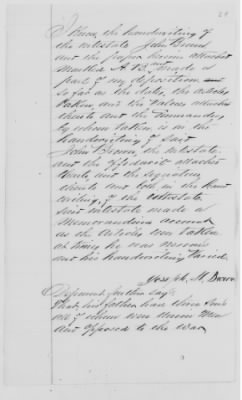 29
I know the handwriting of
the intestate John Brown
and the paper hereto attached
Marked A. B. made a
part of my deposition and
so far as the dates, the articles
taken, and the values attached
thereto and the Commands
by whom taken is in the
handwriting of said
John Brown, the intestate
and the affidavit attached
thereto and the signature
thereto are both in the hand
writing of the intestate
said intestate made a
Memorandum account
as the articles were taken
at times he was nervous
and his handwriting varied.
M. Brown
Deponent further says
that his father had three sons
all of whom were Union Men
and opposed to the War